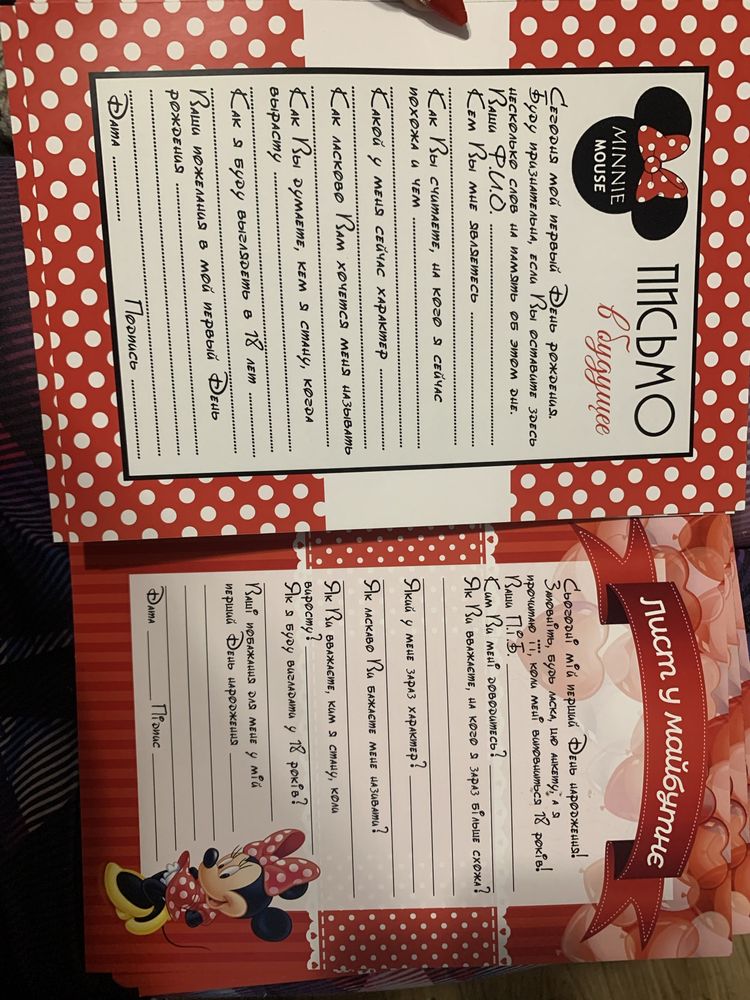 MINNIE
MOUSE
ПИСЬМО
в будущее
Сегодня мой первый День рождения.
Буду признательна, если Вы оставите здесь
несколько слов на память об этом дне.
Ваши Ф.И.О. ..........
Кем Вы мне являетесь ..........
Как Вы считаете, на кого я сейчас
похожа и чем ..........
Какой у меня сейчас характер ..........
Как ласково Вам хочется меня называть
Как Вы думаете, кем я стану, когда
вырасту ..........
Как я буду выглядеть в 18 лет ..........
Ваши пожелания в мой первый День
рождения ..........
Дата .......... Подпись ..........
Лист у майбутнє
Сьогодні мій перший День народження!
Заповніть, будь ласка, цю анкету, а я
прочитаю її, коли мені виповниться 18 років!
Ваши П.І.Б. ______
Ким Ви мені доводитесь? ______
Як Ви вважаєте, на кого я зараз більше схожа?
Який у мене зараз характер? ______
Як ласкаво Ви бажаєте мене називати?
Як Ви вважаєте, ким я стану, коли
виросту? ______
Як я буду виглядати у 18 років?
Ваші побажання для мене у мій
перший День народження
Дата ______ Підпис ______